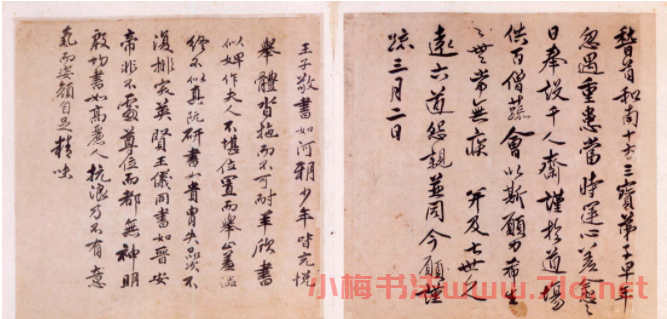 稽首和南十方三寶弟子早年
忽遇重患當時運心差愈之
日奉設千人齋謹於道場
供百僧蔬會以斯願力希生
之世常無疾 并及七世久
遠六道怨親並同今願謹
疏三月二日
王子敬書如河朔少年皆充悅
舉體沓拖而不可耐羊欣書
似婢作夫人不堪位置而舉止羞澀
終不似真阮研書如貴胄失品次不
復排突英賢王儀同書如晉安
帝非不處尊位而都無神明
殷鈞書如高麗人抗浪乃不有意
氣而姿顏自足精味
小梅书法www.7lc.net